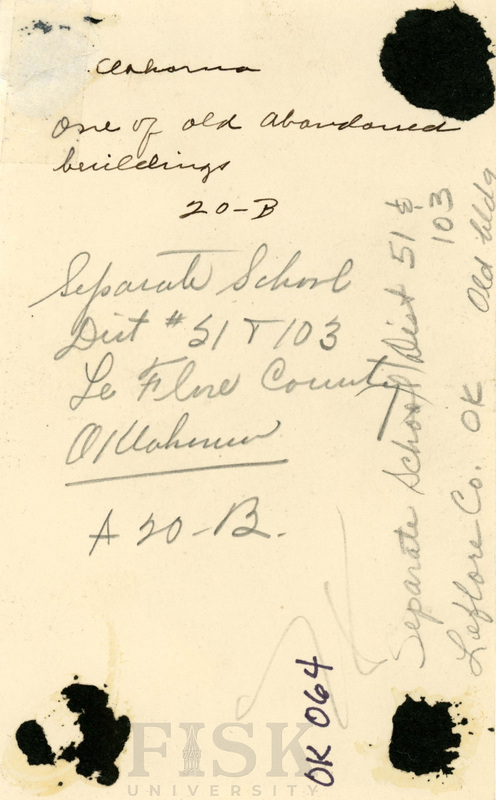 Oklahoma
one of old abandoned
buildings
20-B
Separate School
Dist # 51 + 103
Le Flore County
Oklahoma
A 20-B.
Separate School Dist 51 &
103
Leflore Co. OK Old bldg
OK 064
FISK
UNIVERSITY